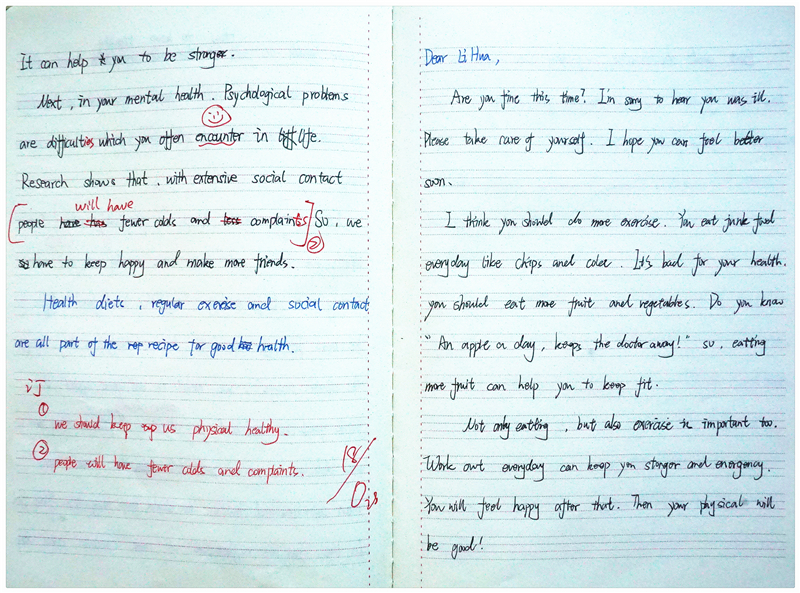 It can help you to be stronger.
Next, in your mental health. Psychological problems
are difficulties which you often encounter in life.
Research shows that, with extensive social contact
will have
people fewer colds and complaints So, we
②
have to keep happy and make more friends.
Health diets, regular exercise and social contact
are all part of the recipe for good health.
订
①
we should keep us physical healthy.
②
people will have fewer colds and complaints.
18/
Dear Li Hua,
Are you fine this time? I'm sorry to hear you was ill.
Please take care of yourself. I hope you can feel better
soon.
I think you should do more exercise. You eat junk food
everyday like chips and coke. It's bad for your health.
you should eat more fruit and vegetables. Do you know
"An apple a day, keeps the doctor away!" so, eatting
more fruit can help you to keep fit.
Not only eatting, but also exercise is important too.
Work out everyday can keep you stonger and energency.
You will feel happy after that. Then your physical will
be good!